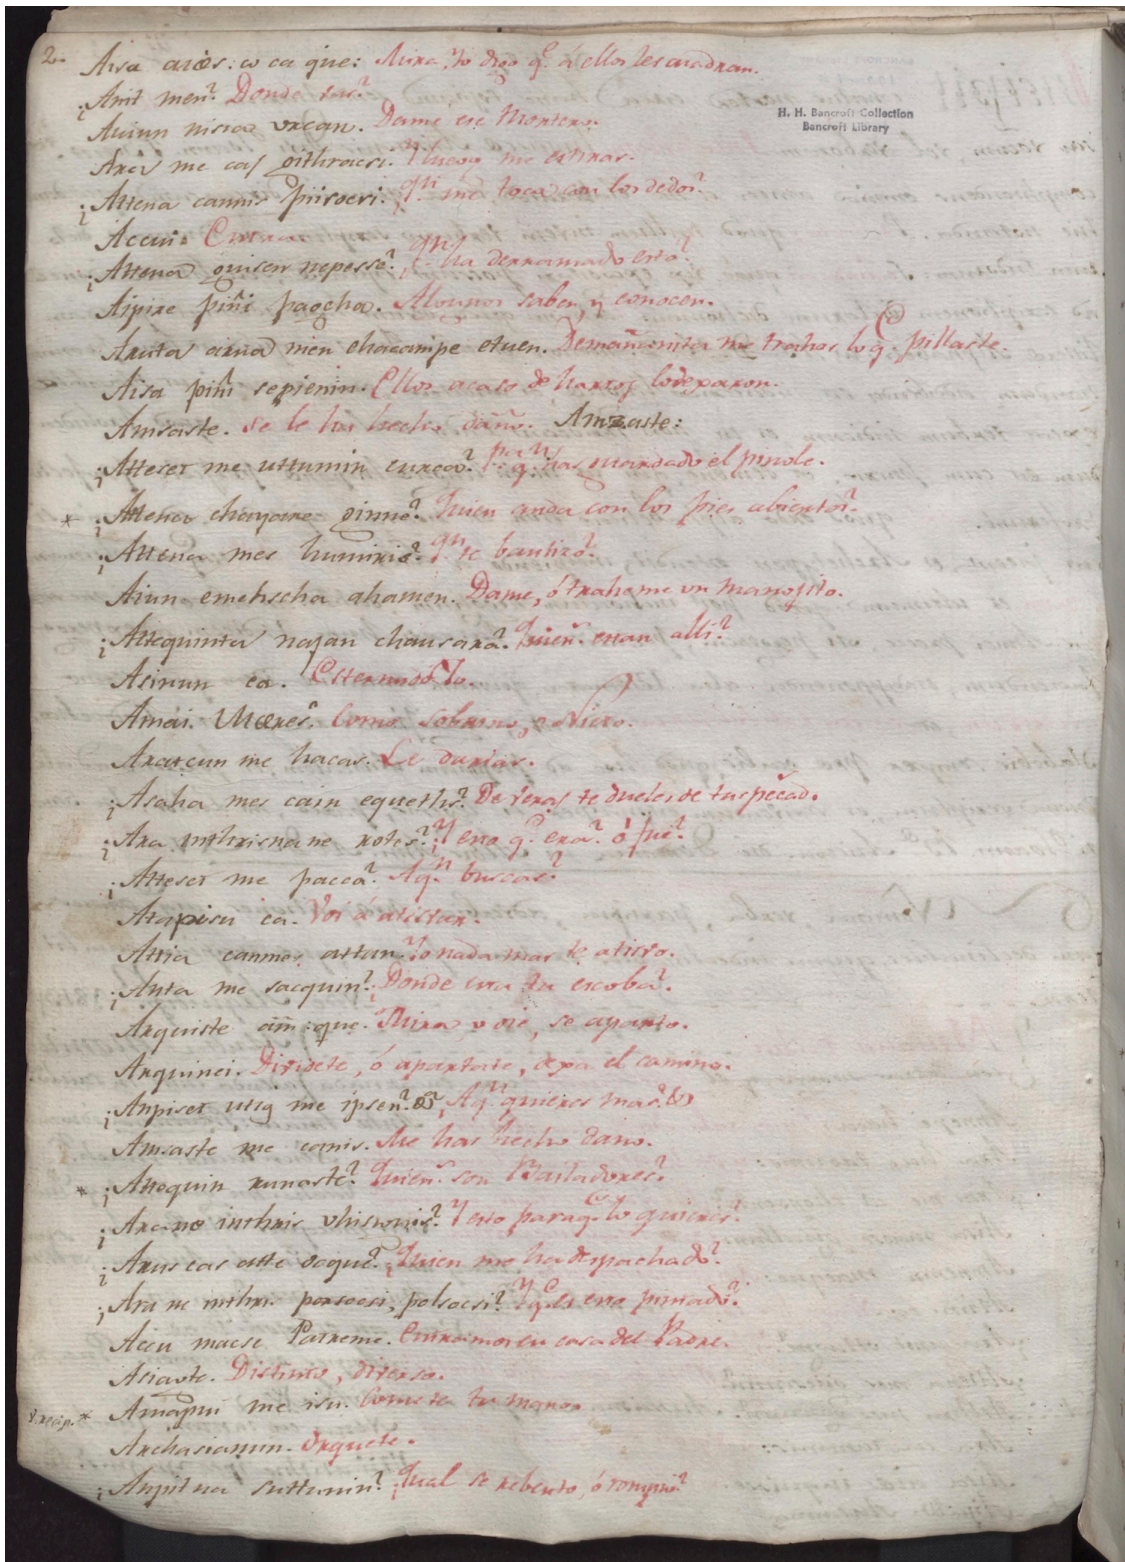 2.
Aisa aiões: co ca que: Mira, Yo digo q.e á ellos les
H. H. Bancroft Collection
Bancroft Library
¿Anit men? Donde vas?
Aiiun nisia urcan. Dame ese Mortero.
Ares me cas githracsi. Y luego me estiras.
¿Attena cannis piiroeri. ¿q.n me toca con los dedos?
Accui:
¿Attena guisen nepesse? ¿q.n ha derramado esto?
Aipire piñi paocha. Algunos saben, y conocen.
Aruta arua men chacampe etuen. Demañanita me trahas lo q.e pillaste.
Aisa piñi sepienin. Ellos acaso de hartos lo dexaron.
Amsaste. se le ha hecho daño. Amzaste:
¿Atteset me uttumin curca? P.a q.n has guardado el pinole.
* ¿Attena chayaire ginne? Quien anda con los pies abiertos?
¿Attena mes huminis? q.n te bautizó?
Aiun emehscha ahamen. Dame, ó traheme un manojito.
¿Attequinta najan chausara? Quien.s estan alli?
Asinun ca. Esternudo Yo.
Amai. Mæres. Como sobrino, o Nieto.
Aratcun me hacas. Le darias.
¿Asaha mes cain equeths? De veras te dueles de tus pecad.s
¿Ara inthrisna ne rotes? ¿Y eso q.e era? ó fue?
¿Atteset me pacca? A q.n buscas?
Atapisu ca. Voi á atistar.
Attia canmes attan. Yo nada mas te atisvo.
¿Anta me sacquin? ¿Donde esta tu escoba?
Arguiste am: que. Mira, u oie, se aparto.
Arguinei. Dividete, ó apartate, dexa el camino.
¿Anpiset utig me ipsen? ¿A q.n quieres mas?
Amsaste me canis. Me has hecho daño.
* ¿Attequin runaste? Quien.s son Bailadores?
¿Arane inthris uhisimis? Y esto paraq.e lo quieres?
¿Arus cas atte oogue? ¿Quien me ha despachado?
¿Ara ne inthri. porsocsi, polsocsi? ¿Y q.e es eso pintado?
Accu macse Patreme. Entramos en casa del Padre.
Asiaste. Distinto, diverso.
* Amapui me isu. Comete tu mano.
Archasianun.
¿Anpit na suttunin? ¿Qual se rebento, ó rompio?